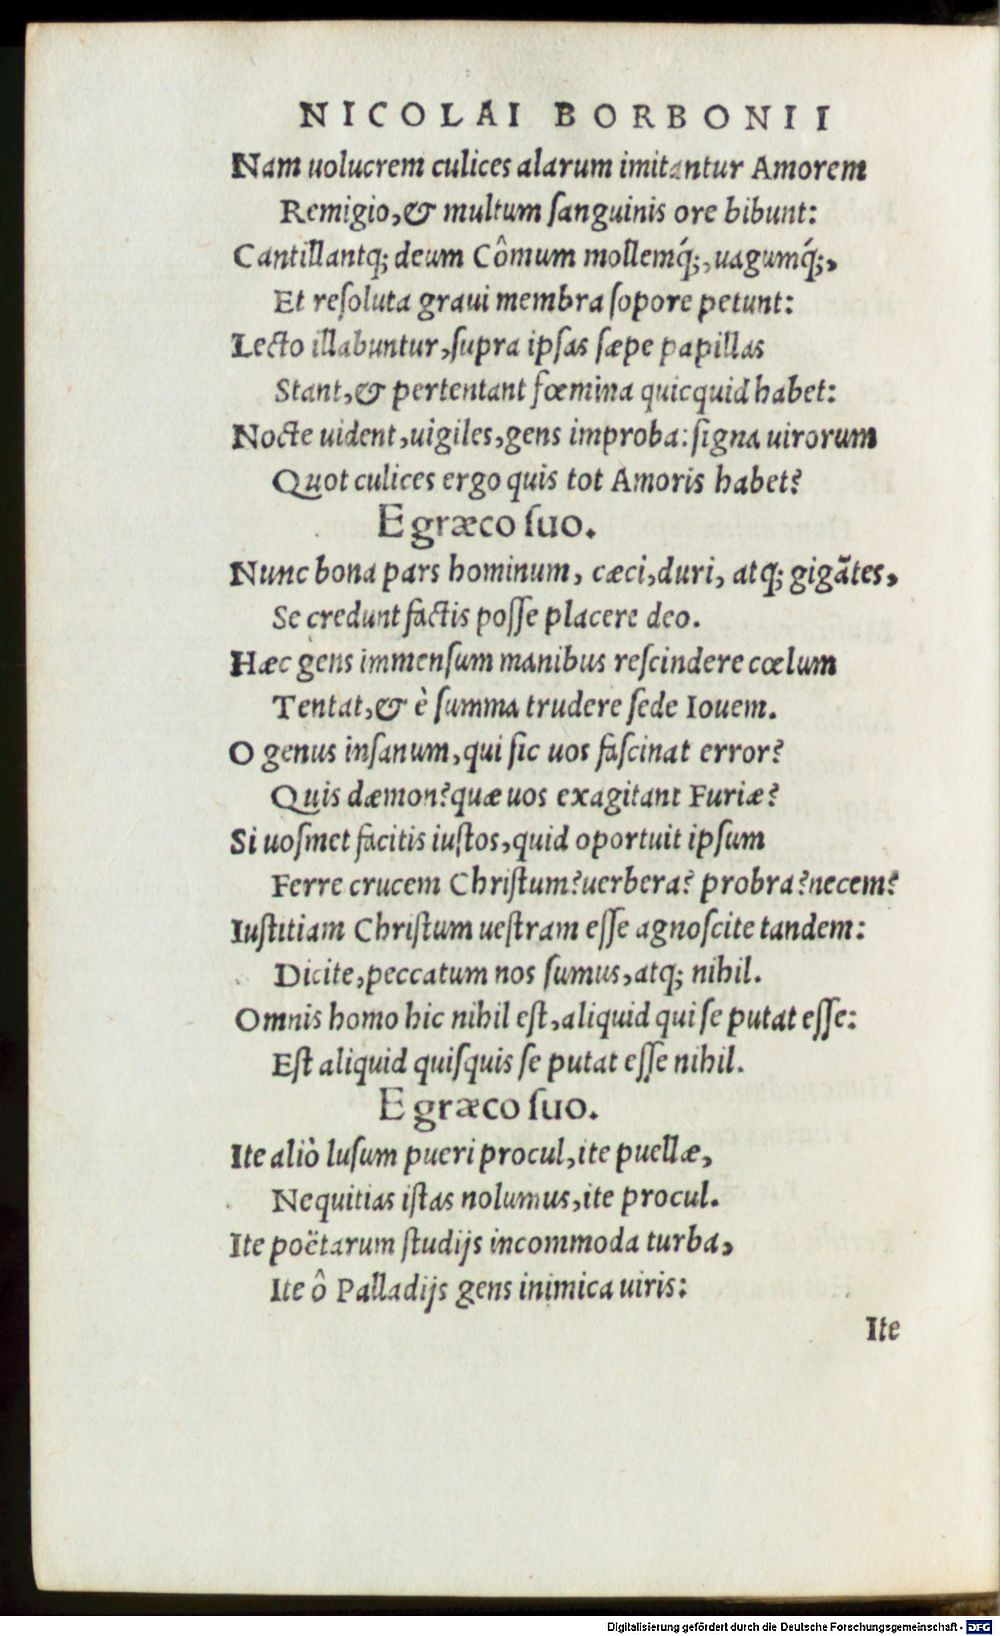 NICOLAI BORBONII
Nam uolucrem culices alarum imitantur Amorem
Remigio,& multum ſanguinis ore bibunt:
Cantillantq; deum Cômum mollemq́;,uagumq́;,
Et reſoluta graui membra ſopore petunt:
Lecto illabuntur,ſupra ipſas ſæpe papillas
Stant,& pertentant fœmina quicquid habet:
Nocte uident,uigiles,gens improba: ſigna uirorum
Quot culices ergo quis tot Amoris habet?
E græco ſuo.
Nunc bona pars hominum, cæci,duri, atq; gigãtes,
Se credunt factis poſſe placere deo.
Hæc gens immenſum manibus reſcindere cœlum
Tentat,& è ſumma trudere ſede Iouem.
O genus inſanum,qui ſic uos faſcinat error?
Quis dæmon?quæ uos exagitant Furiæ?
Si uoſmet facitis iuſtos,quid oportuit ipſum
Ferre crucem Chriſtum?uerbera? probra?necem?
Iuſtitiam Chriſtum ueſtram eſſe agnoſcite tandem:
Dicite,peccatum nos ſumus,atq; nihil.
Omnis homo hic nihil eſt,aliquid qui ſe putat eſſe:
Eſt aliquid quiſquis ſe putat eſſe nihil.
E græco ſuo.
Ite aliò luſum pueri procul,ite puellæ,
Nequitias iſtas nolumus,ite procul.
Ite poëtarum ſtudijs incommoda turba,
Ite ô Palladijs gens inimica uiris:
Ite
Digitalisierung gefördert durch die Deutsche Forschungsgemeinschaft - DFG